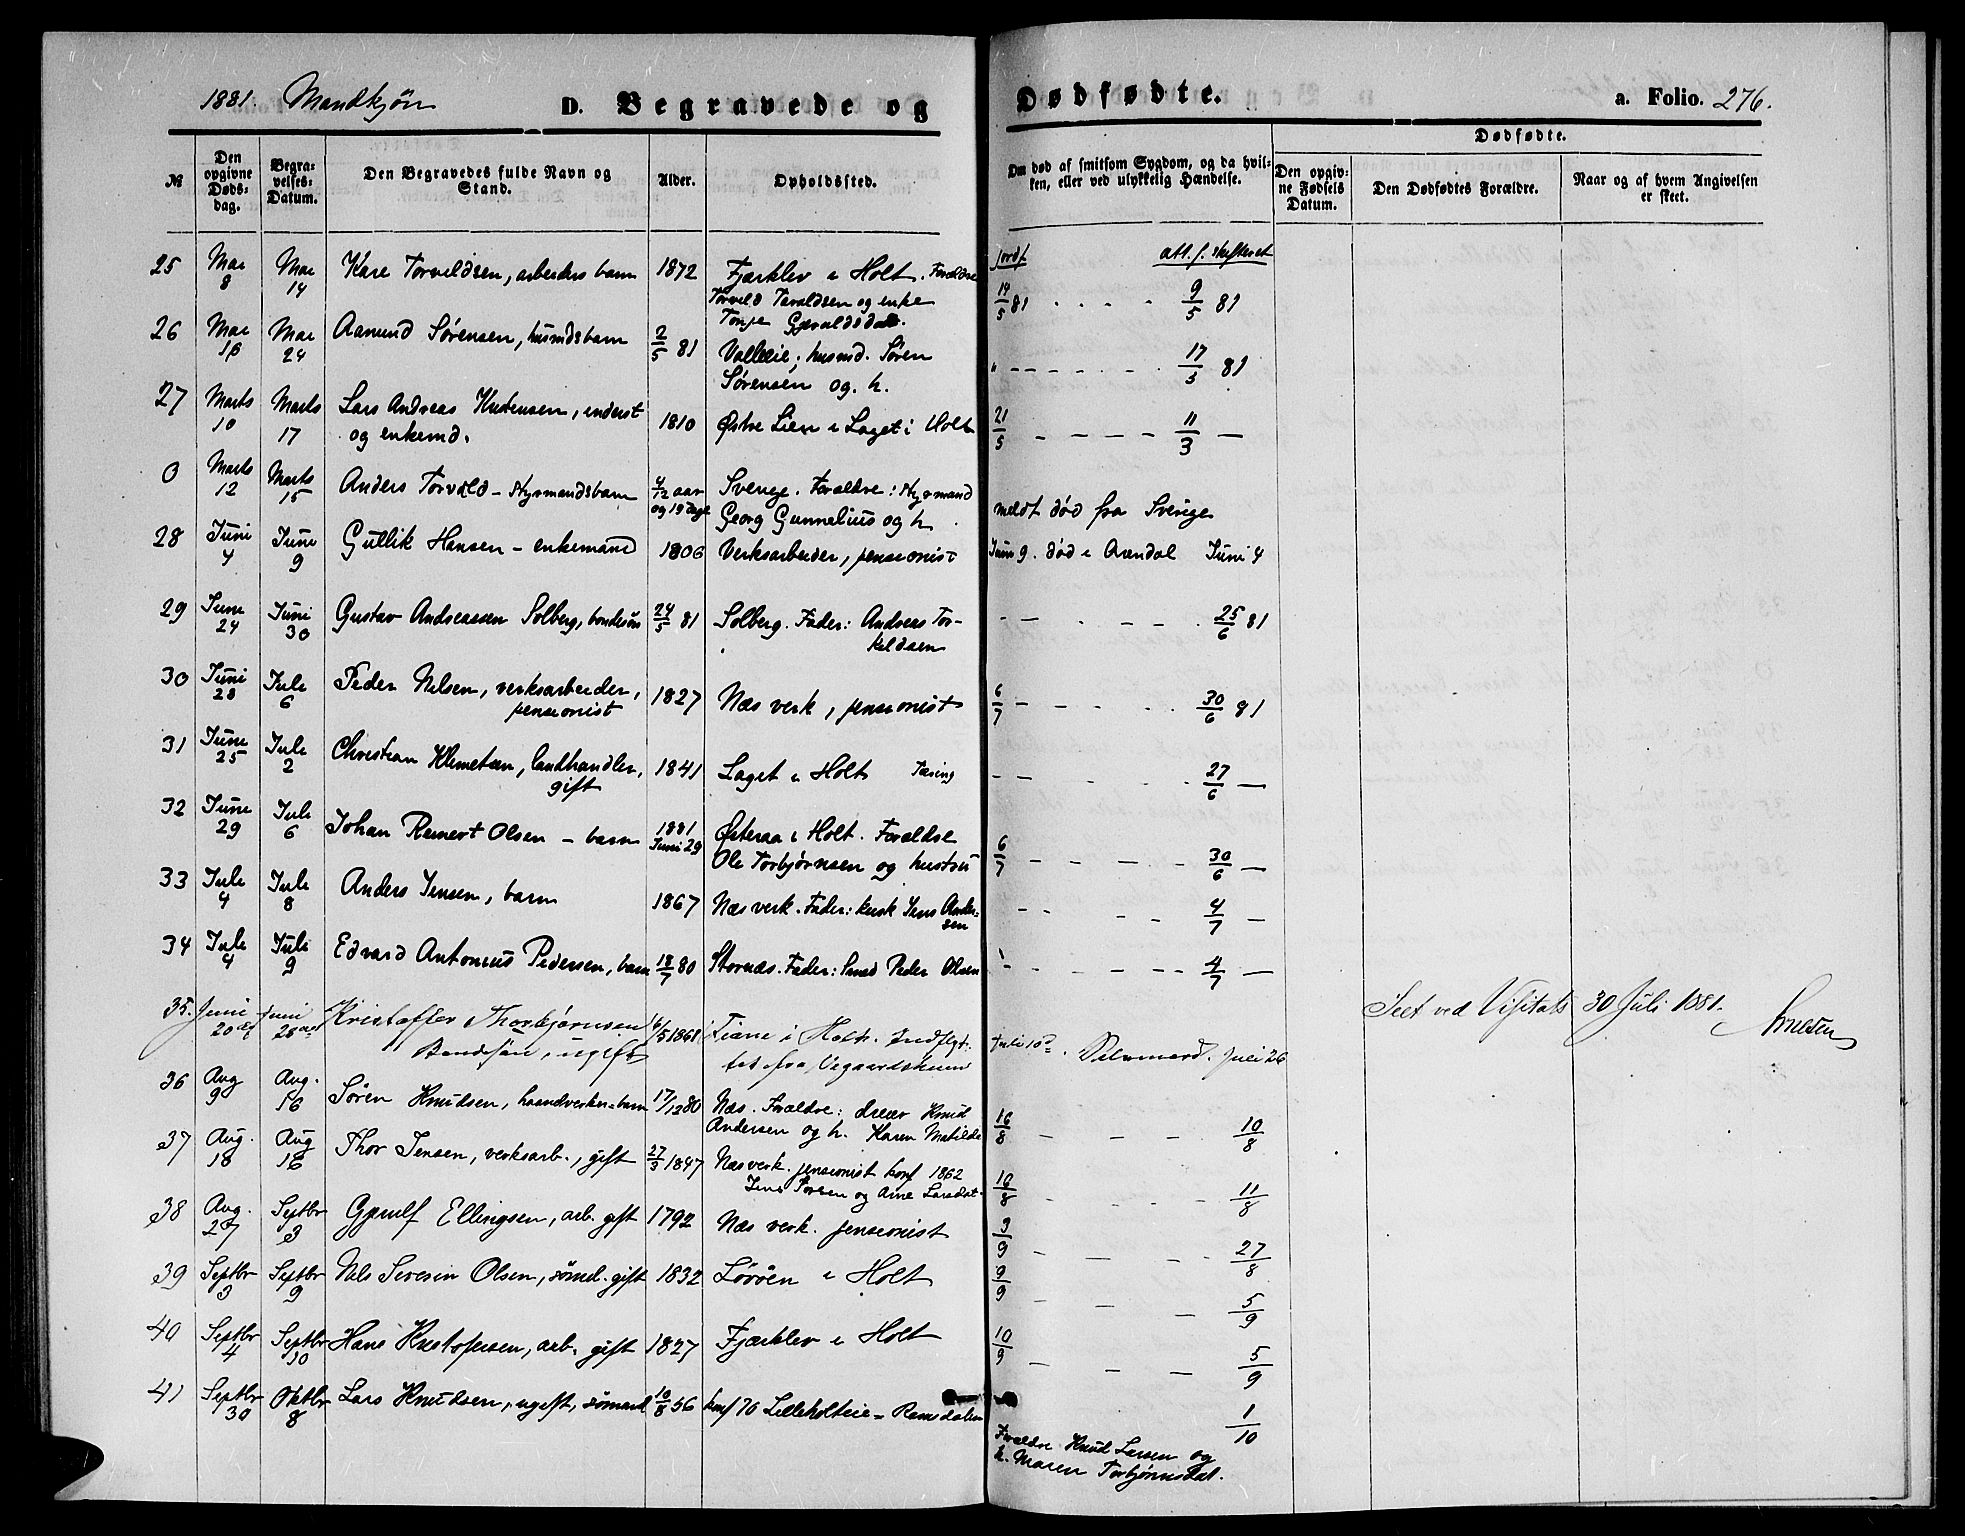 1881. Mandkjøn D. Begravede og Dødfødte. a. Folio. 276.
№ Den opgivne Døds-dag. Begra-velses-Datum. Den Begravedes fulde Navn og Stand. Alder. Opholdssted. Om død af smitsom Sygdom, og da hvil-ken, eller ved ulykkelig Hændelse. Dødfødte.
Den opgiv-ne Fødsels Datum. Den Dødfødtes Forældre. Naar og af hvem Angivelsen er skeet.
jordf. att. f. skifteret
25 Mai 8 Mai 14 Kare Torvildsen, arbeiders barn 1872 Fjærklev i Holt. Forældre 14/5 81 9/5 81
Torvild Tavaldsen og enke
Tonje Gjævaldsdat.
26 Mai 16 Mai 24 Aamund Sørensen, husmdsbarn 2/5 81 Valleie, husmd. Søren " 17/5 81
Sørensen og h.
27 Marts 10 Marts 17 Lars Andreas Kristensen, inderst 1810 Østre Lien i Laget i Holt 21/5 11/3 —
og enkemd.
0 Marts 12 Marts 15 Anders Torvald - Styrmandsbarn 4/12 aar og 19 dage Sverige. Forældre: Styrmand
Georg Gunnelius og h. meldt død fra Sverige
28 Juni 4 Juni 9 Gullik Hansen - enkemand 1806 Verksarbeider, pensionist Juni 9. død i Arendal Juni 4
29 Juni 24 Juni 30 Gustav Andreassen Solberg, bondesøn 24/5 81 Solberg. Fader: Andreas Tor- 25/6 81
keldsen
30 Juni 28 Juli 6 Peder Nilsen, verksarbeider, 1827 Næs verk, pensionist 6/7 30/6 81
pensionist
31 Juni 25 Juli 2 Christian Klemetsen, landhandler, 1841 Laget i Holt Tæring 27/6 —
gift
32 Juni 29 Juli 6 Johan Reinert Olsen - barn 1881 Juni 29 Østeraa i Holt. Forældre
Ole Torbjørnsen og hustru 6/7 30/6 —
33 Juli 4 Juli 8 Anders Jensen, barn 1867 Næs verk. Fader: kusk Jens Ander- 4/7 —
sen
34 Juli 4 Juli 9 Edvard Antonius Pedersen, barn 18/7 80 Stornæs. Fader: Smed Peder Olsen 4/7 —
Seet ved Visitats 30 Juli 1881.
35. Juni 20de Juni 28 Kristoffer Thorbjørnsen 16/5 1861 Tiane i Holt. Indflyt-
Bondesøn, ugift tet fra Vegaardsheien Juli 10de. Selvmord. Juli 26
36 Aug 9 Aug. 16 Søren Knudsen, haandverker-barn 17/12 80 Næs. Forældre: dreier Knud
Andersen og h. Karen Matilde 16/8 10/8
37 Aug. 18 Aug 16 Thor Jensen, verksarb., gift 27/3 1847 Næs verk. pensionist konf 1862
Jens Torsen og Ane Larsdat. 16/8 11/8
38 Aug. 27 Septbr 3 Gjerulf Ellingsen, arb. gift 1792 Næs verk. pensionist 3/9 27/8
39 Septbr 3 Septbr 9 Nils Severin Olsen, sømd. gift 1832 Løvøen i Holt 9/9 5/9
40 Septbr 4 Septbr 10 Hans Kristofersen, arb. gift 1827 Fjærklev i Holt 10/9 5/9
41 Septbr 30 Oktbr 8 Lars Knudsen, ugift, sømand 10/8 56 konf 70 Lilleholteie - Ramsdalen 1/10
Forældre Knud Larsen og
h. Maren Torbjørnsdat.